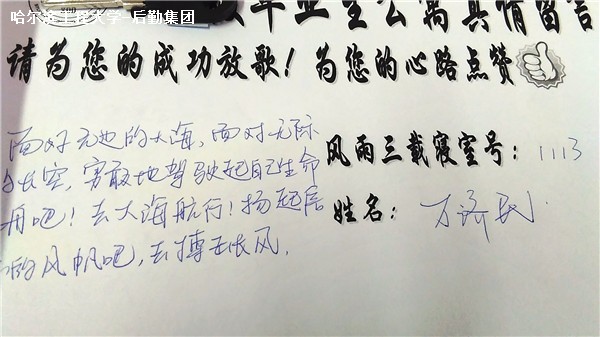 哈尔滨工程大学-后勤集团
毕业生公寓真情留言
请为您的成功放歌！为您的心路点赞
面对无边的大海，面对无际
长空，勇敢地驾驶起自己生命
舟吧！去大海航行！扬起
的风帆吧，去搏击长风。
风雨三载寝室号：1113
姓名：万济民